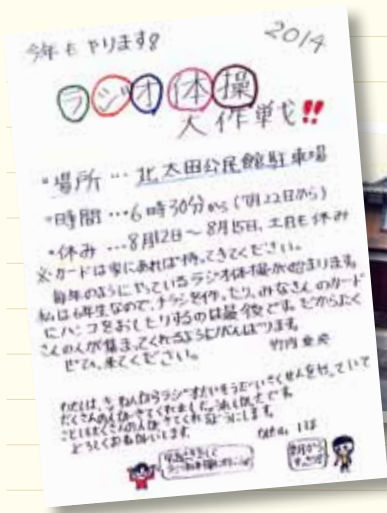 今年もやります!
2014
ラジオ体操
大作戦!!
・場所…北太田公民館駐車場
・時間…6時30分から(7月22日から)
・休み…8月12日〜8月15日、土日も休み
※カードは家にあれば持ってきてください。
毎年のようにやっているラジオ体操が始まります。
私は6年生なので、チラシを作ったり、みなさんのカード
にハンコをおしたりするのは最後です。だからたく
さんの人が集まってくれるようにがんばります。
ぜひ、来てください。 竹内
わたしは、きょねんからラジオたいそうだいさくせんを
たくさんの人がきてくれました。
ことしもたくさんの人がきてくれるようにします。
よろしくおねがいします。